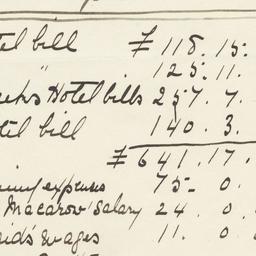 tel bill £ 118. 15.
" 125. 11.
eeks Hotel bills 257. 7.
tel bill 140. 3.
£ 641. 17.
expenses 75- 0.
Macarow Salary 24. 0.
aid's wages 11. 0